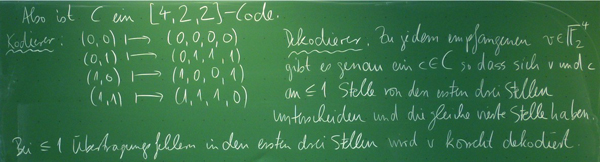 Also ist C ein [4,2,2]-Code.
Kodierer: (0,0) ⟼ (0,0,0,0)
(0,1) ⟼ (0,1,1,1)
(1,0) ⟼ (1,0,0,1)
(1,1) ⟼ (1,1,1,0)
Dekodierer: Zu jedem empfangenen v∈𝔽₂⁴
gibt es genau ein c∈C so dass sich v und c
an ≤1 Stelle von den ersten drei Stellen
unterscheiden und die gleiche vierte Stelle haben.
Bei ≤1 Übertragungsfehlern in den ersten drei Stellen wird v korrekt dekodiert.